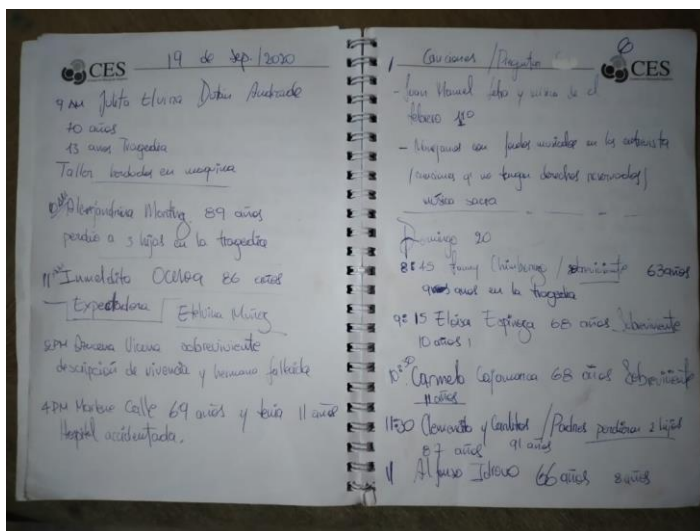 CES
19 de Sep./2020
9 AM Julita Elvina Durán Andrade
70 años
13 anos Tragedia
Taller bordados en maquina
Alejandrina 89 años
perdio a 3 hijos en la tragedia
Inmeldita Ochoa 86 años
Expectadora Etelvina Muñoz
Vicena sobreviviente
descripción de vivencia y hermana fallecida
4 PM Marlene Calle 69 años y tenia 11 años
Hospital accidentada.
Canciones / Preguntas
CES
- Juan Manuel letra y musica de el
febrero
- con fondos musicales en las entrevista
/ canciones q' no tengan derechos reservados /
música sacra
Domingo 20
8:45 Fanny / sobreviviente 63 años
anos en la tragedia
9:15 Eloisa Espinoza 68 años Sobreviviente
10 años
Carmela Cajamarca 68 años Sobreviviente
11 años
11:30 Clemencita y Carlitos / Padres perdieron 2 hijos
87 años 91 años
Alfonso Idrovo 66 años 8 años